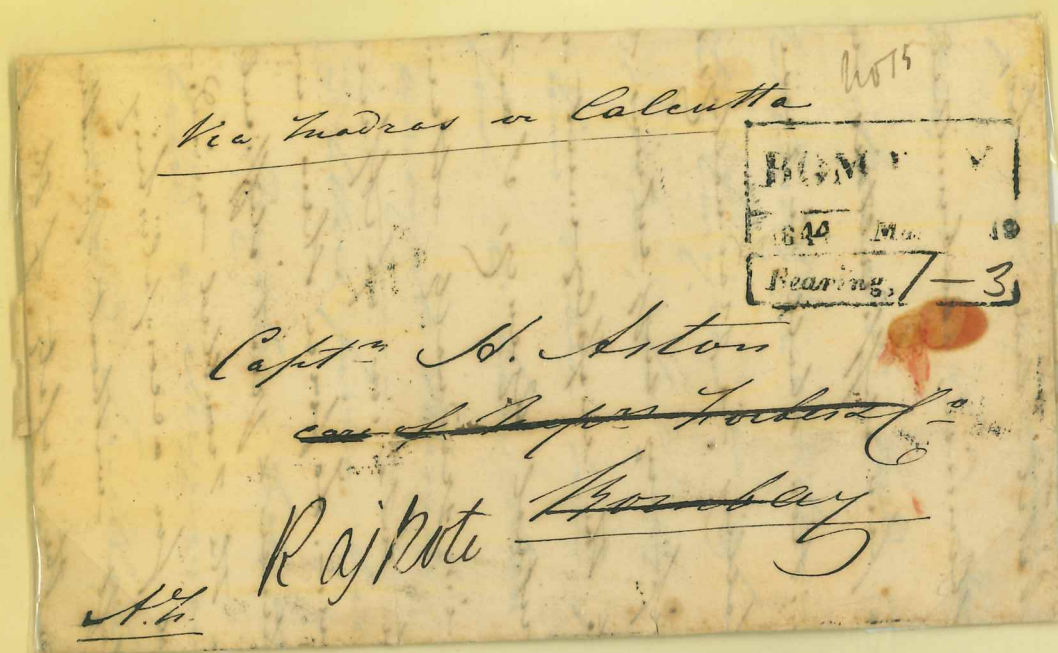 No 15
Via Madras or Calcutta
BOM Y
1844 Ma 19
Bearing, 1-3
Captn H. Aston
care of Messrs Forbes & Co
Bombay
RajKote